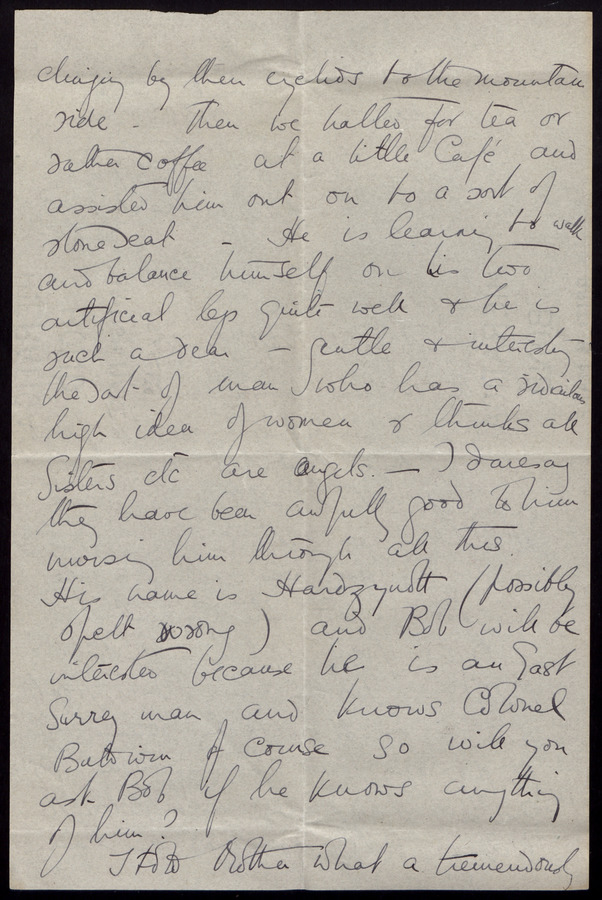 clinging by their eyelids to the mountain
side - then we halted for tea or
rather coffee at a little Café and
assisted him out on to a sort of
stone seat - He is learning to walk
and balance himself on his two
artificial legs quite well & he is
such a dear - gentle & interesting
the sort of man who has a ridiculous
high idea of women & thinks all
Sisters etc are angels. - I daresay
they have been awfully good to him
nursing him through all this.
His name is (possibly
spelt wrong) and Bob will be
interested because he is an East
Surrey man and knows Colonel
Baldwin of course so will you
ask Bob if he knows anything
of him?
I told Mother what a tremendously